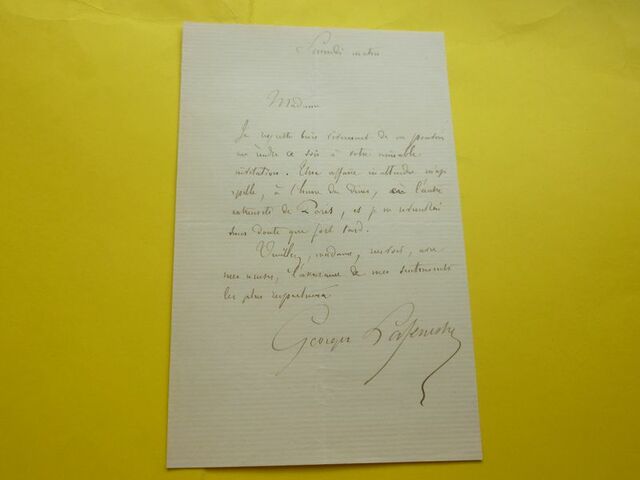 Samedi matin
Madame
Je regrette bien vivement de ne pouvoir
me rendre ce soir à votre aimable
invitation. Une affaire inattendue m'ap
pelle, à l'heure du dîner, à l'autre
extrémité de Paris, et je ne reviendrai
sans doute que fort tard.
Veuillez, madame, recevoir, avec
mes excuses, l'assurance de mes sentiments
les plus respectueux
Georges Lafenestre